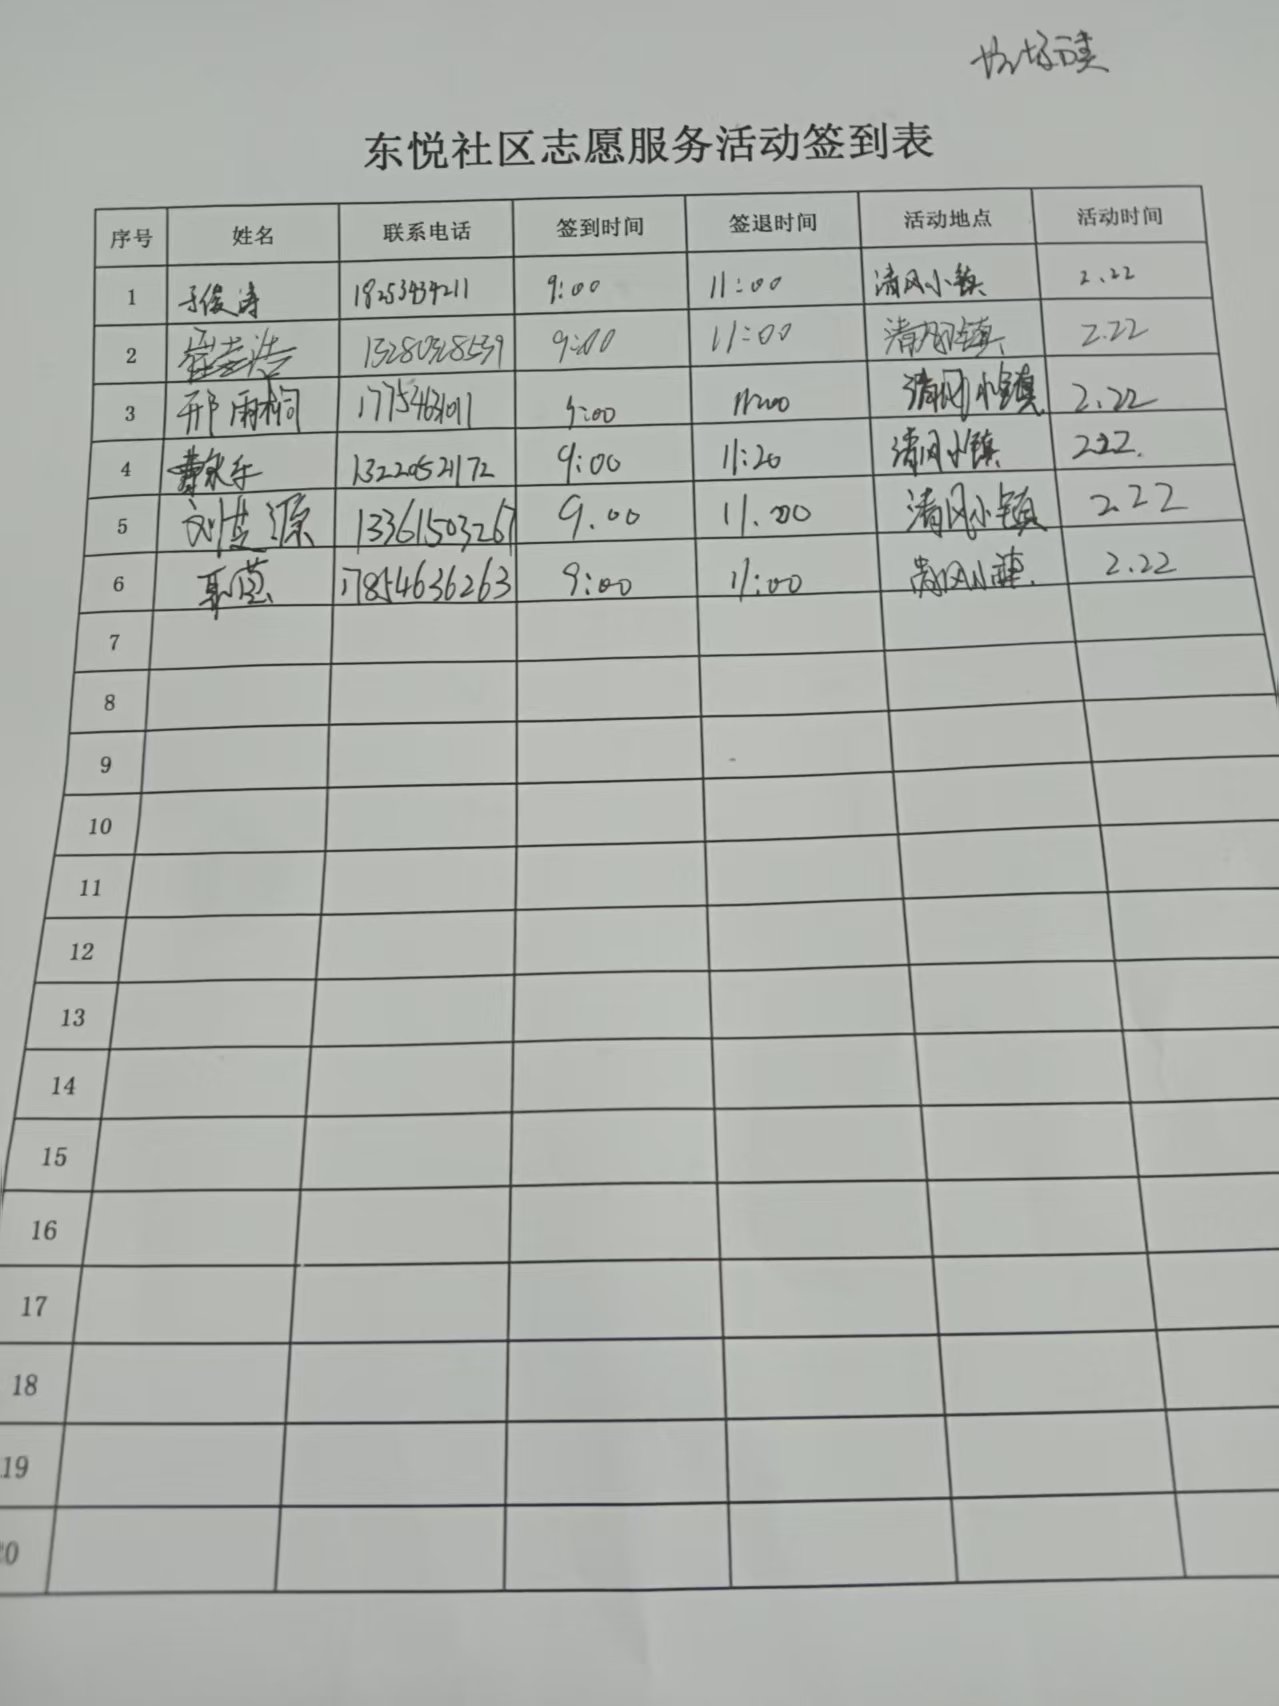 东悦社区志愿服务活动签到表
序号 姓名 联系电话 签到时间 签退时间 活动地点 活动时间
1 于俊涛 18253434211 9:00 11:00 清风小镇 2.22
2 13280328539 9:00 11:00 清风小镇 2.22
3 邢雨桐 9:00 11:00 清风小镇 2.22
4 13220521172 9:00 11:20 清风小镇 2.22.
5 源 13361503267 9.00 11.00 清风小镇 2.22
6 17854636263 9:00 11:00 清风小镇. 2.22
7
8
9
10
11
12
13
14
15
16
17
18
19